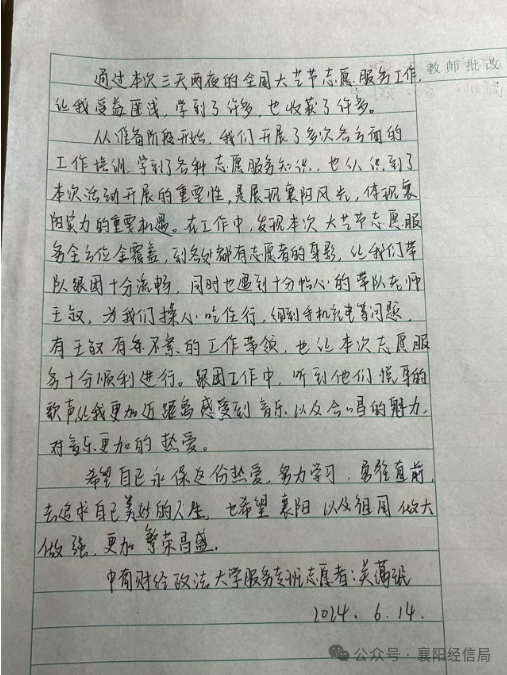 教师批改
通过本次三天两夜的全国大艺节志愿服务工作,
让我受益匪浅,学到了许多,也收获了许多。
从准备阶段开始,我们开展了多次各方面的
工作培训,学到了各种志愿服务知识,也认识到了
本次活动开展的重要性,是展现襄阳风光,体现襄
阳实力的重要机遇。在工作中,发现本次大艺节志愿服
务全方位全覆盖,到处都有志愿者的身影,让我们带
队跟团十分流畅,同时也遇到十分贴心的带队老师
王钗,为我们操心吃住行,细到手机充电等问题,
有王钗有条不紊的工作带领,也让本次志愿服
务十分顺利进行。跟团工作中,听到他们悦耳的
歌声让我更加近距离感受到音乐以及合唱的魅力,
对音乐更加的热爱。
希望自己永保这份热爱,努力学习,勇往直前,
去追求自己美好的人生,也希望襄阳以及祖国做大
做强,更加繁荣昌盛。
中南财经政法大学服务专班志愿者:吴
2024.6.14.
公众号·襄阳经信局